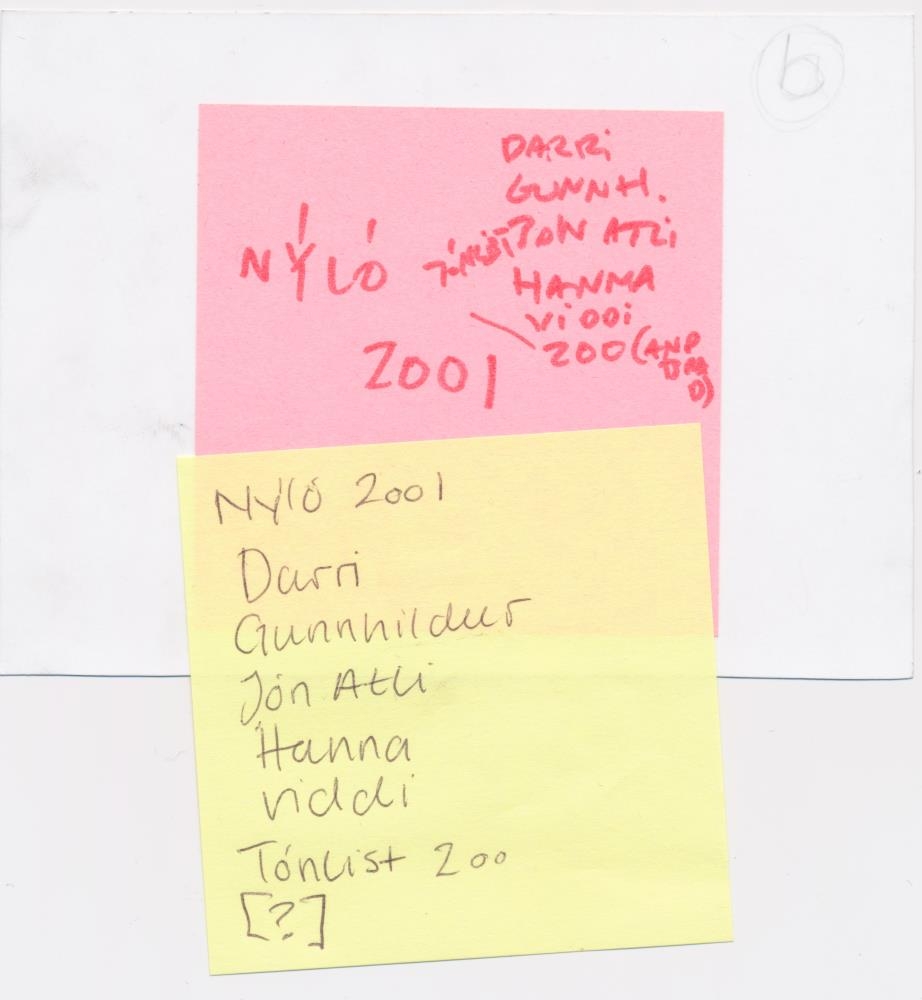 b
DARRi
GUNNH.
JON ATLi
HANNA
ViDDi
200 (AND
NÝLÓ
TÓNLIST
2001
Nýló 2001
Darri
Gunnhildur
Jón Atli
Hanna
viddi
Tónlist 200
[?]